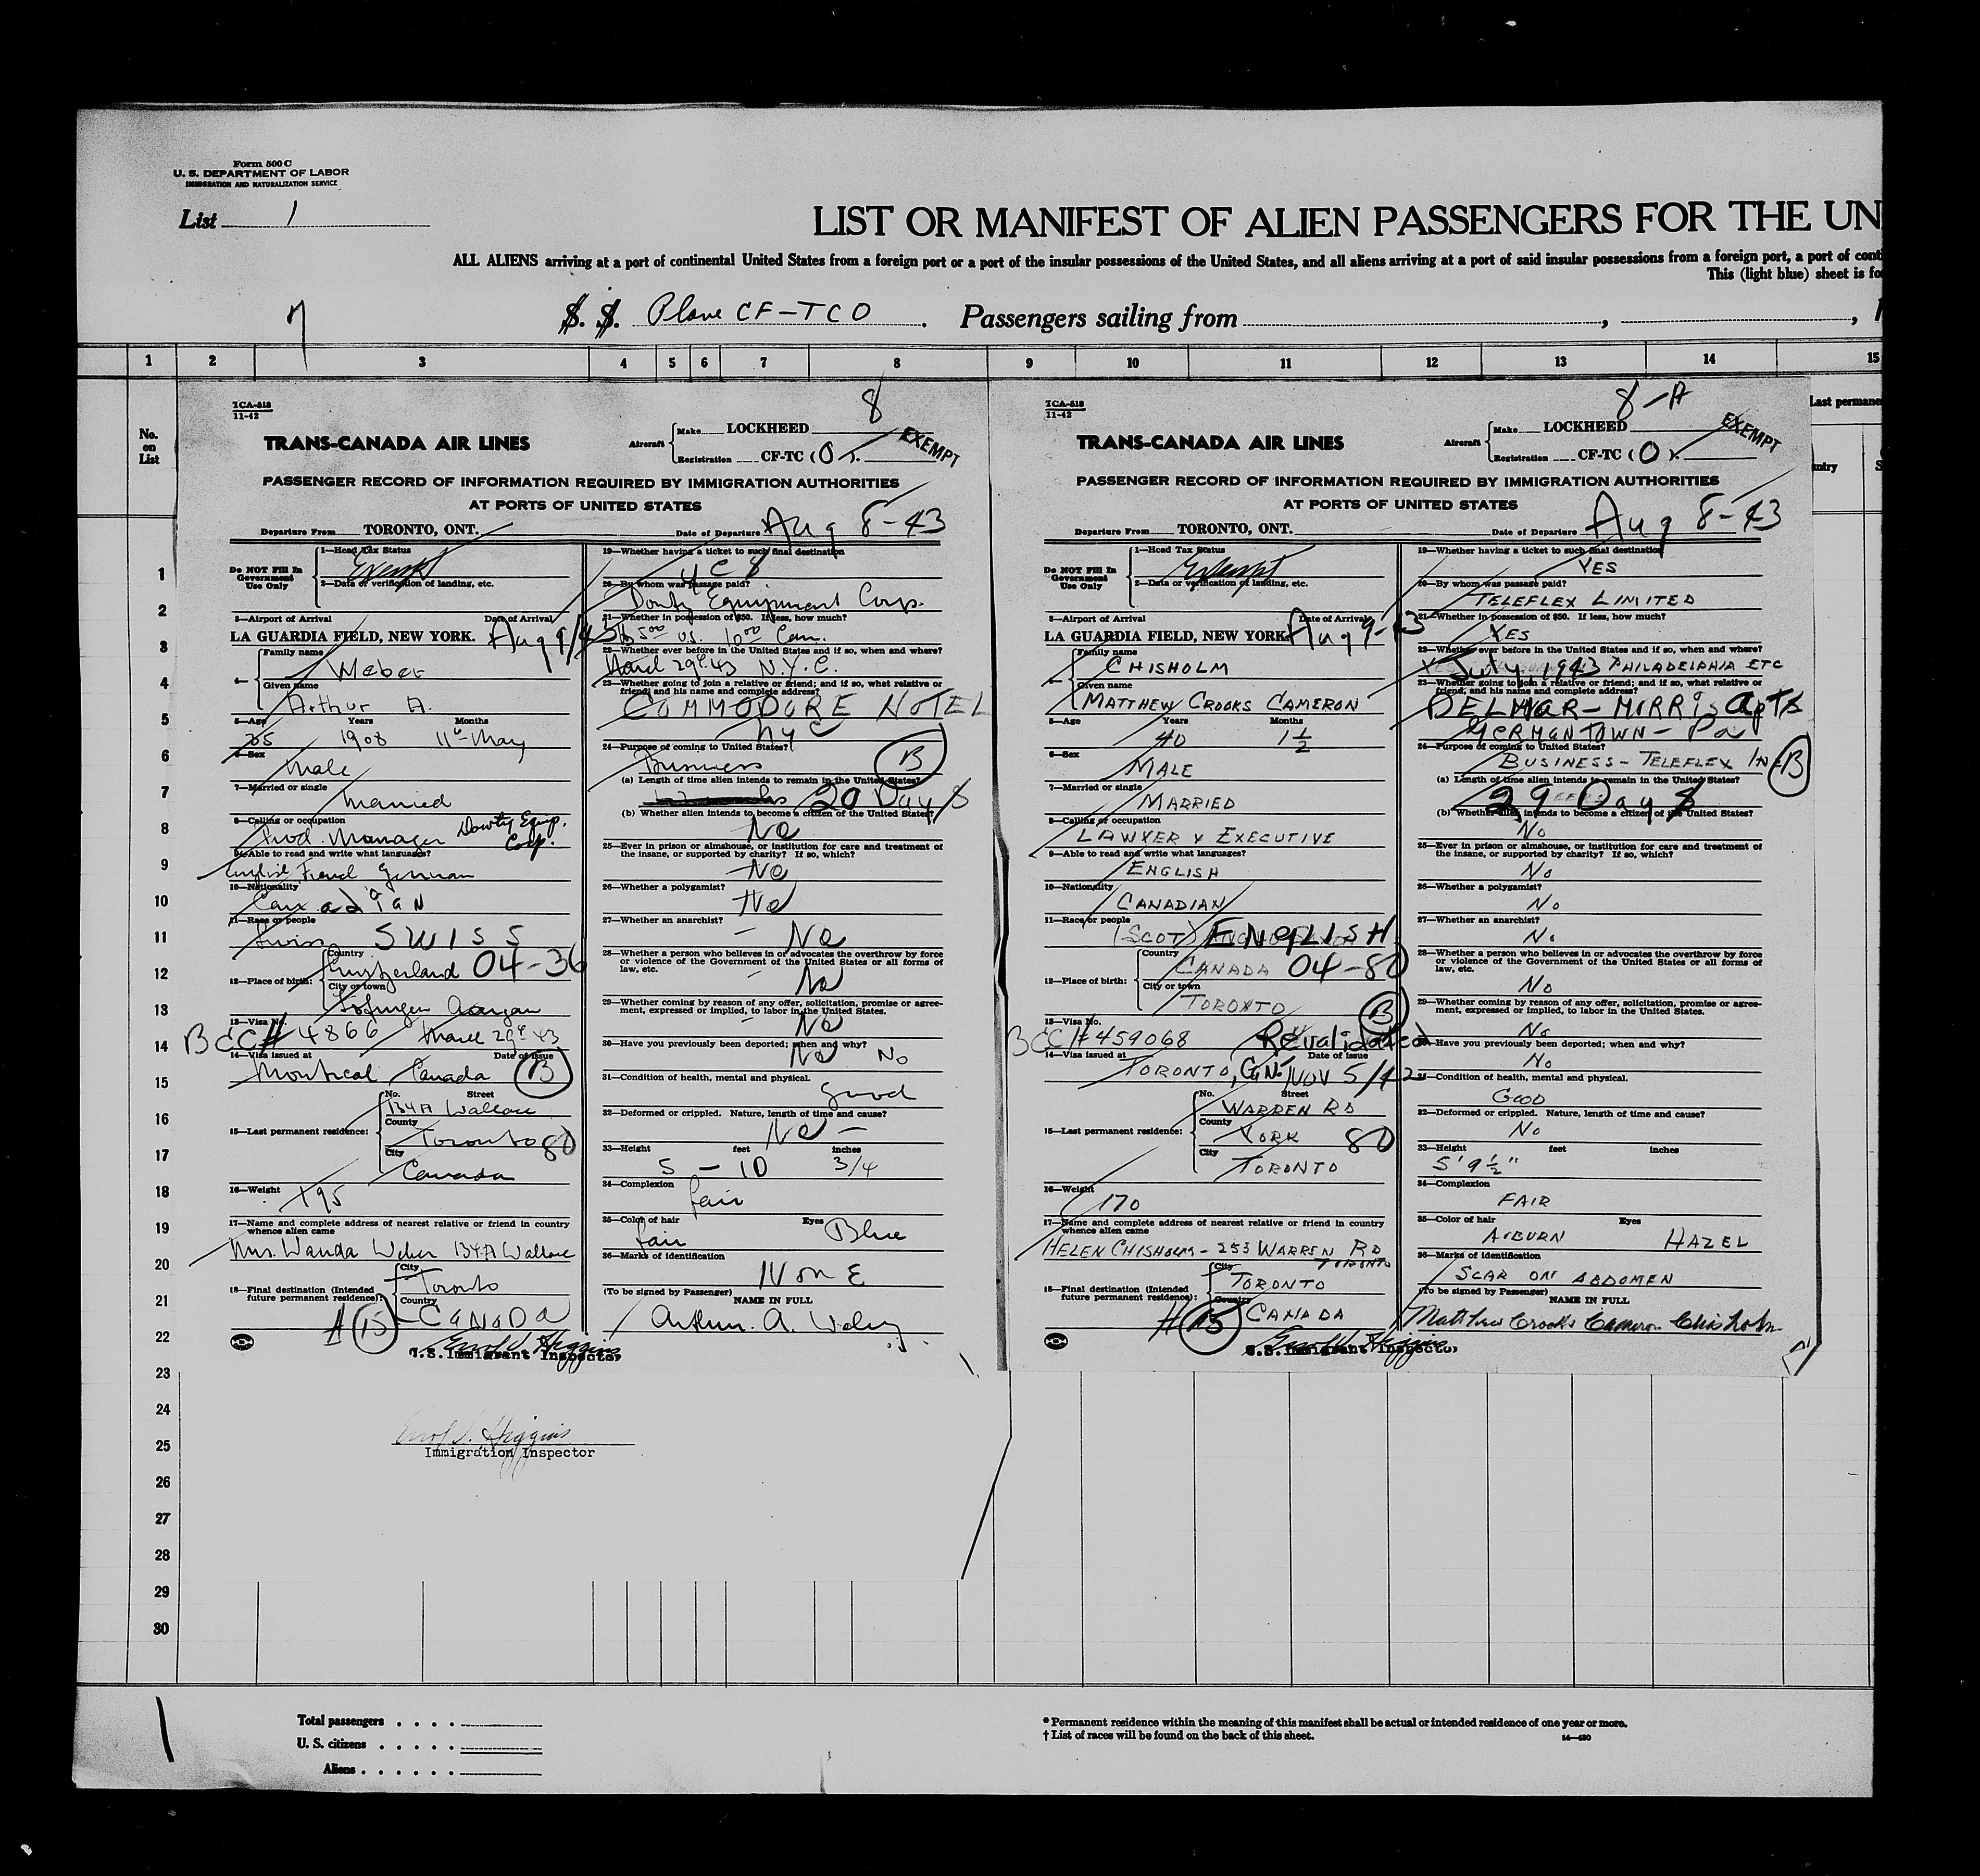 Form 500 C
U. S. DEPARTMENT OF LABOR
IMMIGRATION AND NATURALIZATION SERVICE
List 1
LIST OR MANIFEST OF ALIEN PASSENGERS FOR THE UN
ALL ALIENS arriving at a port of continental United States from a foreign port or a port of the insular possessions of the United States, and all aliens arriving at a port of said insular possessions from a foreign port, a port of cont
This (light blue) sheet is fo
7
S. S. Plane CF-TCO . Passengers sailing from , , 1
1 2 3 4 5 6 7 8 9 10 11 12 13 14 15
No. on List
Last permane
ntry
S
TCA-518
11-42
8
TRANS-CANADA AIR LINES
Aircraft Make LOCKHEED
Registration CF-TC (O).
EXEMPT
PASSENGER RECORD OF INFORMATION REQUIRED BY IMMIGRATION AUTHORITIES
AT PORTS OF UNITED STATES
Departure From TORONTO, ONT.
Date of Departure Aug 8-43
Do NOT Fill In Government Use Only
1—Head Tax Status
Exempt
2—Data or verification of landing, etc.
3—Airport of Arrival Date of Arrival
LA GUARDIA FIELD, NEW YORK. Aug 9/43
4— Family name
Weber
Given name
Arthur A.
5—Age Years Months
35 1908 11th May
6—Sex
Male
7—Married or single
Married
8—Calling or occupation
Prod. Manager Dowty Equip. Corp.
9—Able to read and write what languages?
English French German
10—Nationality
Canadian
11—Race or people
Swiss SWISS
12—Place of birth: Country
Switzerland 04-36
City or town
13—Visa No.
BCC# 4866 March 29th 43
14—Visa issued at Date of issue
Montreal Canada B
15—Last permanent residence: No. Street
134A Wallace
County
Toronto 80
City
Canada
16—Weight
195
17—Name and complete address of nearest relative or friend in country whence alien came
Mrs. Wanda Weber 134A Wallace
18—Final destination (Intended future permanent residence): City
Toronto
Country
CANADA
U.S. Immigrant Inspector
19—Whether having a ticket to such final destination
yes
20—By whom was passage paid?
Dowty Equipment Corp.
21—Whether in possession of $50. If less, how much?
500 us. 1000 Can.
22—Whether ever before in the United States and if so, when and where?
March 29th 43 N.Y.C.
23—Whether going to join a relative or friend; and if so, what relative or friend, and his name and complete address?
COMMODORE HOTEL
NYC
24—Purpose of coming to United States?
Business B
(a) Length of time alien intends to remain in the United States?
20 Days
(b) Whether alien intends to become a citizen of the United States?
No
25—Ever in prison or almshouse, or institution for care and treatment of the insane, or supported by charity? If so, which?
No
26—Whether a polygamist?
No
27—Whether an anarchist?
No
28—Whether a person who believes in or advocates the overthrow by force or violence of the Government of the United States or all forms of law, etc.
No
29—Whether coming by reason of any offer, solicitation, promise or agreement, expressed or implied, to labor in the United States.
No
30—Have you previously been deported; when and why?
No No
31—Condition of health, mental and physical.
Good
32—Deformed or crippled. Nature, length of time and cause?
No
33—Height feet inches
5 - 10 3/4
34—Complexion
fair
35—Color of hair Eyes
fair Blue
36—Marks of identification
NonE
(To be signed by Passenger)
NAME IN FULL
Arthur. A. Weber
TCA-518
11-42
8-A
TRANS-CANADA AIR LINES
Aircraft Make LOCKHEED
Registration CF-TC (O).
EXEMPT
PASSENGER RECORD OF INFORMATION REQUIRED BY IMMIGRATION AUTHORITIES
AT PORTS OF UNITED STATES
Departure From TORONTO, ONT.
Date of Departure Aug 8-43
Do NOT Fill In Government Use Only
1—Head Tax Status
Exempt
2—Data or verification of landing, etc.
3—Airport of Arrival Date of Arrival
LA GUARDIA FIELD, NEW YORK. Aug 9-43
4— Family name
CHISHOLM
Given name
MATTHEW CROOKS CAMERON
5—Age Years Months
40 1 1/2
6—Sex
MALE
7—Married or single
MARRIED
8—Calling or occupation
LAWYER & EXECUTIVE
9—Able to read and write what languages?
ENGLISH
10—Nationality
CANADIAN
11—Race or people
(SCOT) ENGLISH
12—Place of birth: Country
CANADA 04-80
City or town
TORONTO B
13—Visa No.
BCC# 459068 Revalidated
14—Visa issued at Date of issue
TORONTO, ONT. NOV 5/42
15—Last permanent residence: No. Street
WARREN RD
County
YORK 80
City
TORONTO
16—Weight
170
17—Name and complete address of nearest relative or friend in country whence alien came
HELEN CHISHOLM - 253 WARREN RD
TORONTO
18—Final destination (Intended future permanent residence): City
TORONTO
Country
CANADA
U.S. Immigrant Inspector
19—Whether having a ticket to such final destination
YES
20—By whom was passage paid?
TELEFLEX LIMITED
21—Whether in possession of $50. If less, how much?
YES
22—Whether ever before in the United States and if so, when and where?
July 1943 PHILADELPHIA ETC
23—Whether going to join a relative or friend; and if so, what relative or friend, and his name and complete address?
DELMAR-MORRIS Apts
GERMANTOWN - Pa
24—Purpose of coming to United States?
BUSINESS - TELEFLEX INC B
(a) Length of time alien intends to remain in the United States?
29 Days
(b) Whether alien intends to become a citizen of the United States?
No
25—Ever in prison or almshouse, or institution for care and treatment of the insane, or supported by charity? If so, which?
No
26—Whether a polygamist?
No
27—Whether an anarchist?
No
28—Whether a person who believes in or advocates the overthrow by force or violence of the Government of the United States or all forms of law, etc.
No
29—Whether coming by reason of any offer, solicitation, promise or agreement, expressed or implied, to labor in the United States.
No
30—Have you previously been deported; when and why?
No
31—Condition of health, mental and physical.
GOOD
32—Deformed or crippled. Nature, length of time and cause?
No
33—Height feet inches
5' 9 1/2"
34—Complexion
FAIR
35—Color of hair Eyes
AUBURN HAZEL
36—Marks of identification
SCAR ON ABDOMEN
(To be signed by Passenger)
NAME IN FULL
Matthew Crooks Cameron Chisholm
Immigration Inspector
1
2
3
4
5
6
7
8
9
10
11
12
13
14
15
16
17
18
19
20
21
22
23
24
25
26
27
28
29
30
Total passengers . . . .
U. S. citizens . . . . .
Aliens . . . . . .
* Permanent residence within the meaning of this manifest shall be actual or intended residence of one year or more.
† List of races will be found on the back of this sheet.
14—430